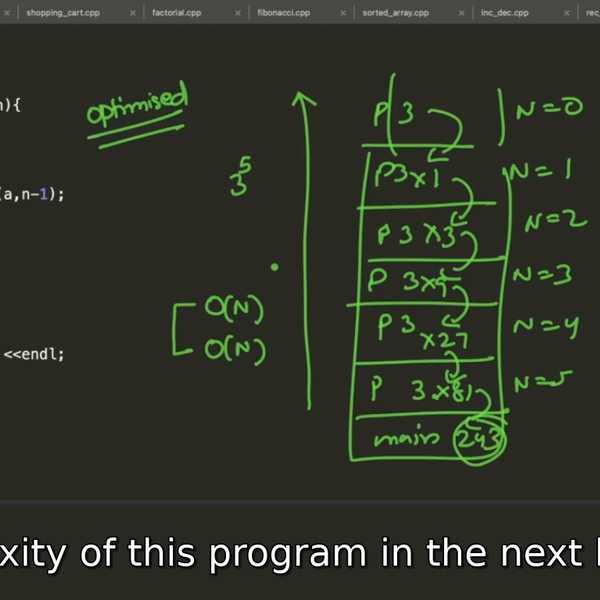 shopping_cart.cpp factorial.cpp fibonacci.cpp sorted_array.cpp inc_dec.cpp rec
n){
optimised
P 3 N=0
3^5
P3x1 N=1
(a,n-1);
P 3 x3 N=2
P 3x9 N=3
O(N)
P 3 x27 N=4
O(N)
<<endl;
P 3 x81 N=5
main 243
xity of this program in the next